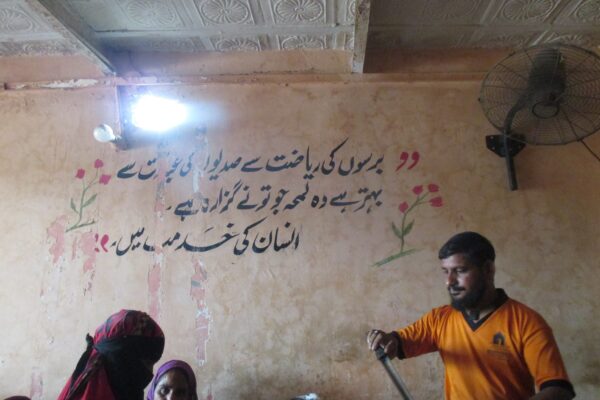 برسوں کی ریاضت سے صدیوں کی عبادت سے
بہتر ہے وہ لمحہ جو تو نے گزارا ہے
انسان کی خدمت میں